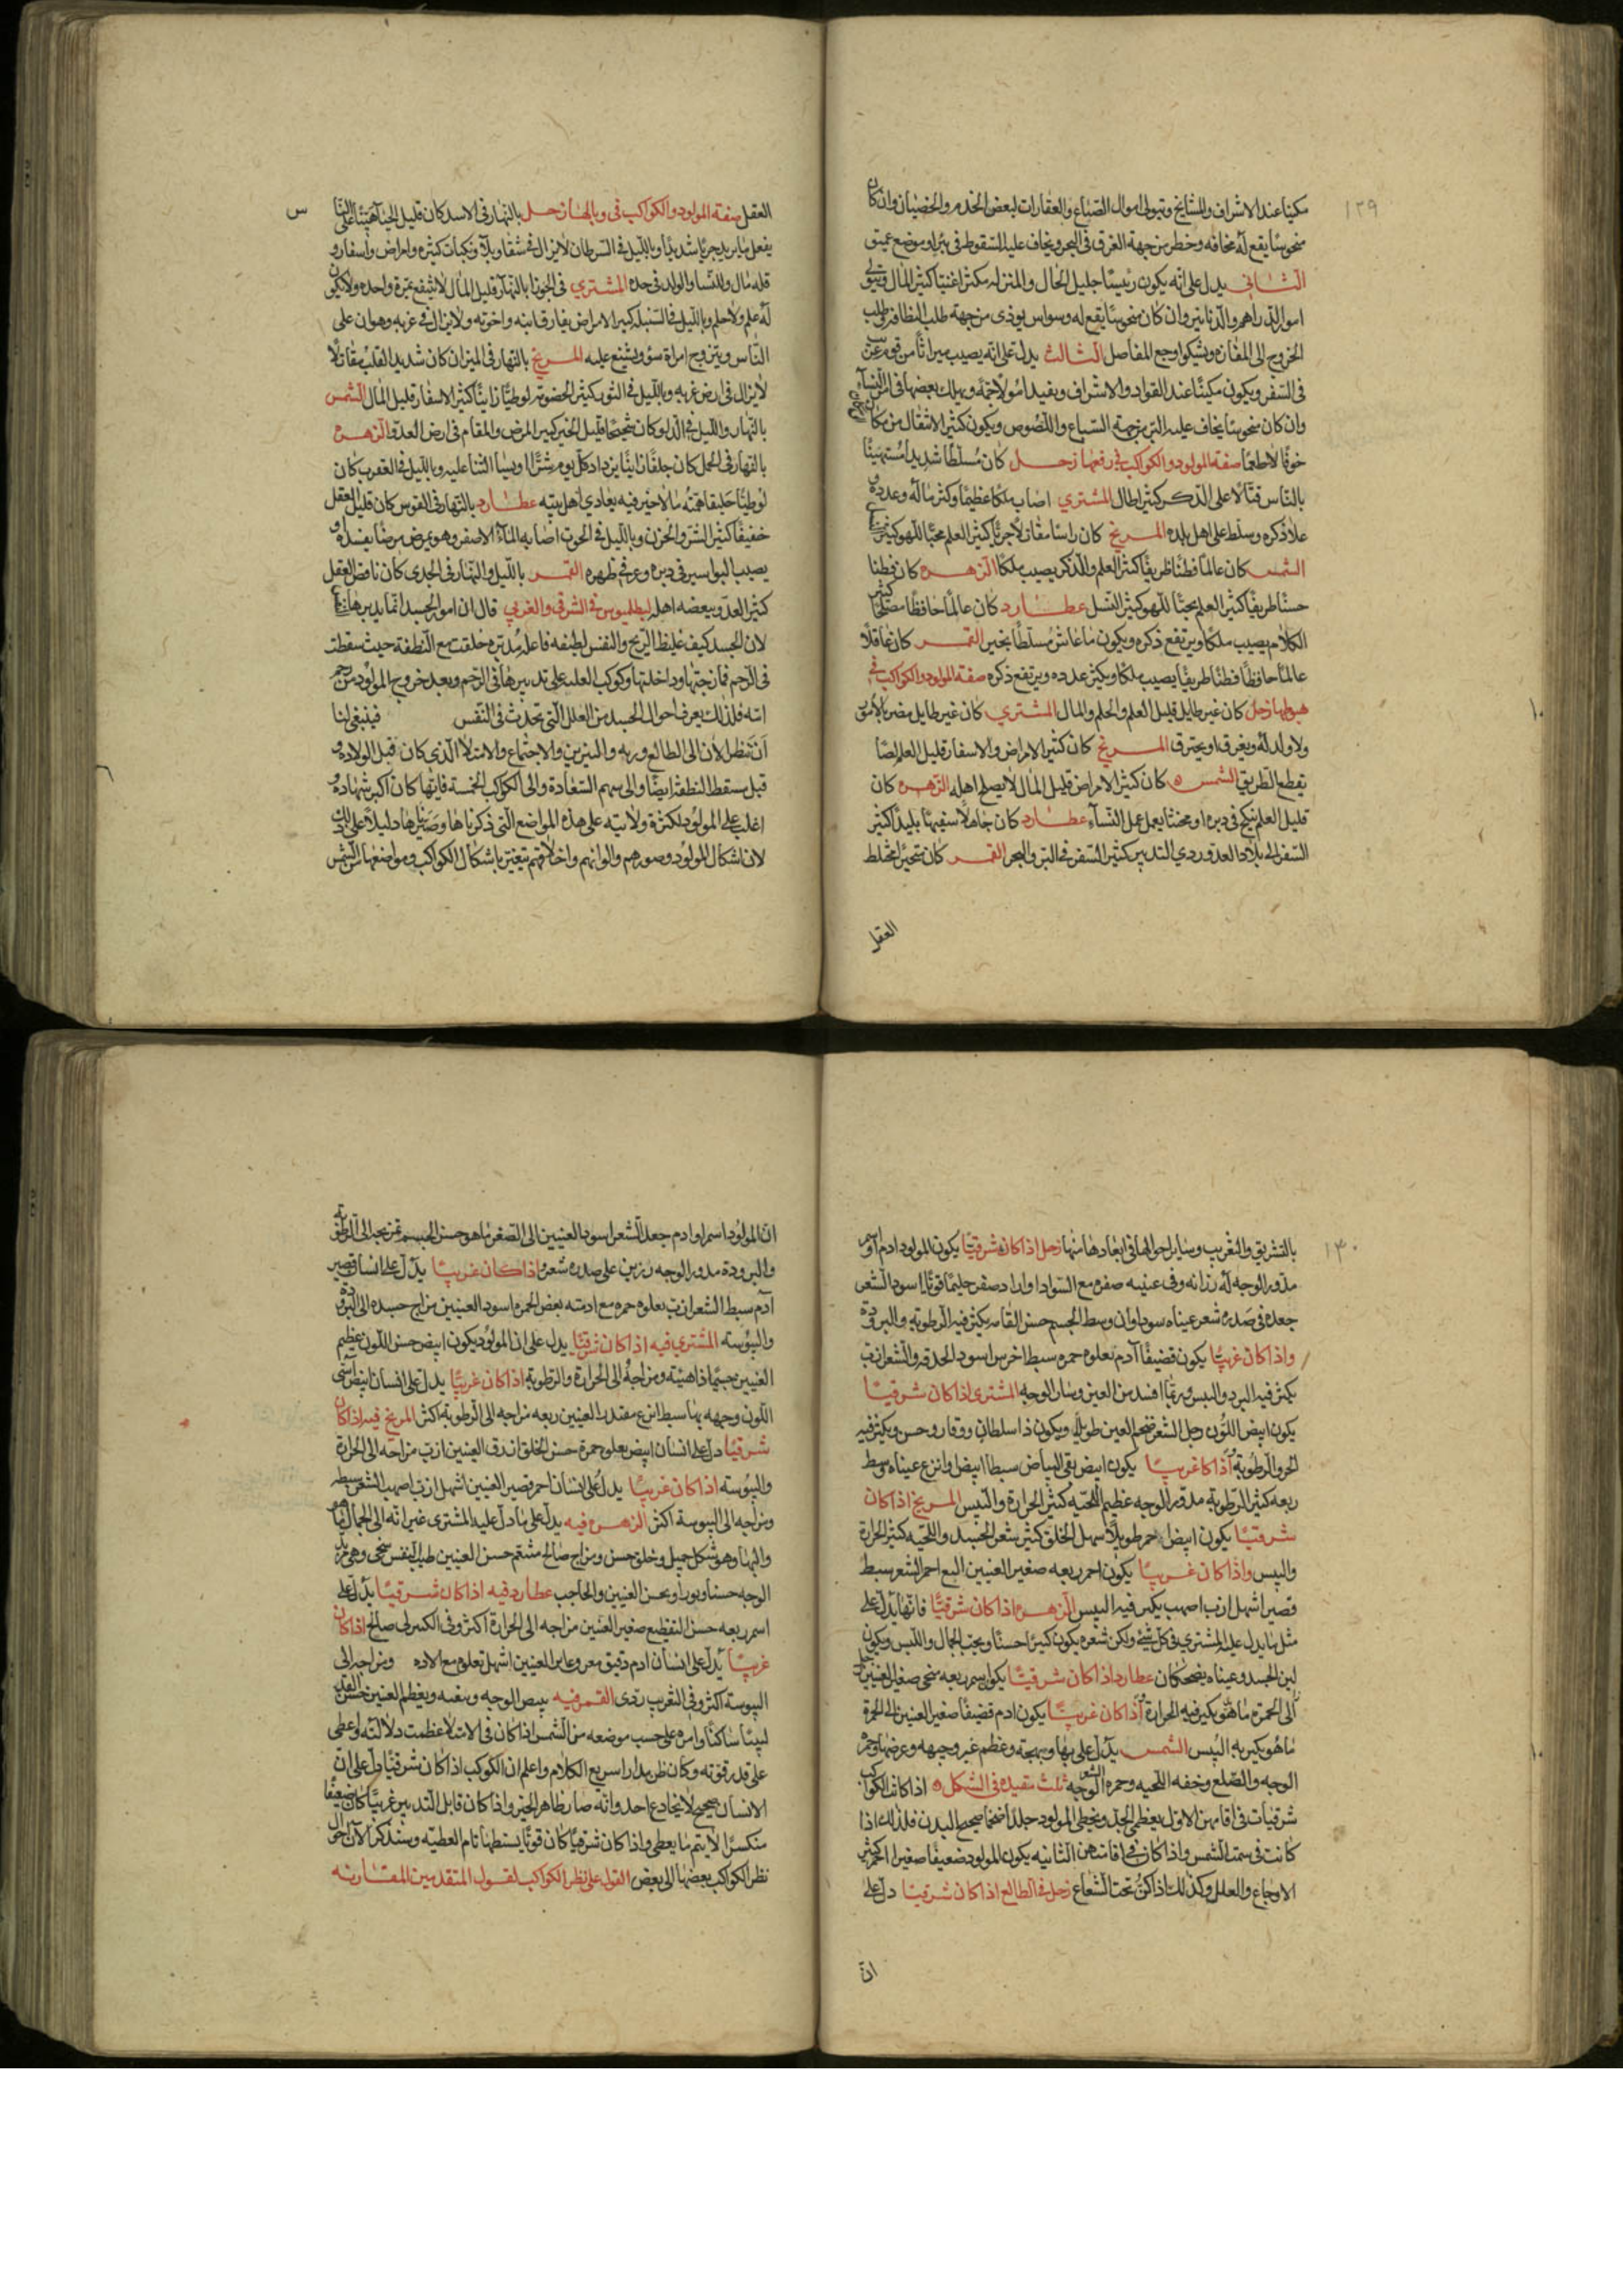 ١٢٩
مكينا عند الاشراف والمشايخ ويتولى اموال الضياع والعقارات لبعض الخدم والخصيان وان كان
منحوسا يقع له مخافه وخطر من جهة الغرق فى البحر ويخاف عليه السقوط فى بئر او موضع عميق
الثانى يدل على انه يكون رئيسا جليل الحال والمنزله مكثرا غنيا كثير المال
اموال الدراهم والدنانير وان كان منحوسا يقع له وسواس يوذى من جهة طلب
الخروج الى المفازه ويشكوا وجع المفاصل الثالث يدل على انه يصيب ميراثا من قوم
فى السفر ويكون مكينا عند القواد والاشراف ويفيد اموالا جمه ويهلك بعضها فى امر النسآء
وان كان منحوسا يخاف عليه البتر من جهة السباع واللصوص ويكون كثير الانتقال من مكان
خوفا لا طعنا صفة المولود والكواكب فى رفعها زحل كان مسلطا شديدا مستهينا
بالناس قتالا على الذكر كثير ابطال المشترى اصاب ملكا عظيما وكثر ماله وعدده و
علا ذكره وسلط على اهل بلده المريخ كان راسا مقاتلا جريا كثير العلم محبا للهو كثير
الشمس كان عالما فطنا ظريفا كثير العلم والذكر يصيب ملكا الزهره كان فطنا
حسنا ظريفا كثير العلم محبا للهو كثير النسل عطارد كان عالما حافظا مصلحا كثير
الكلام يصيب ملكا ويرتفع ذكره ويكون ما عاش مسلطا بخير القمر كان عاقلا
عالما حافظا فطنا ظريفا يصيب ملكا ويكثر عدده ويرتفع ذكره صفة المولود والكواكب فى
هبوطها زحل كان غير طايل قليل العلم والحلم والمال المشترى كان غير طايل مضر بالامور
ولا ولد له ويغرق او يحترق المريخ كان كثير الامراض والاسفار قليل العلم لصا
يقطع الطريق الشمس كان كثير الامراض قليل المال لا يصلح اهله الزهره كان
قليل العلم ينكح فى دبره او مخنثا يعمل عمل النسآء عطارد كان جاهلا سفيها بليدا كثير
السفر الى بلاد العدو ردي التدبير كثير السفر فى البر والبحر القمر كان متحيرا مختلط
العقل
العقل صفة المولود والكواكب فى وبالها زحل بالنهار فى الاسد كان قليل الحيا
يفعل ما يريد جريا شديدا وبالليل فى السرطان لا يزال فى شقا وبلا ونكبات كثيره وامراض واسفار و
قله مال والنسا والولد فى حده المشتري فى الجوزا بالنهار قليل المال لا ينتفع بثمرة واحده ولا يكون
له علم ولا حلم وبالليل فى السنبله كبير الامراض يفارق ابنه واخوته ولا يزال فى غربه وهوان على
الناس ويتزوج امراة سوء ويشنع عليه المريخ بالنهار فى الميزان كان شديد القلب مقاتلا
لا يزال فى ارض غربه وبالليل فى الثور كثير الخصومه لوطيا زانيا كثير الاسفار قليل المال الشمس
بالنهار والليل فى الدلو كان شحيحا قليل الخير كبير المرض والمقام فى ارض العدو الزهره
بالنهار فى الحمل كان جلفا زانيا يزداد كل يوم شرا او يسا الثنا عليه وبالليل فى العقرب كان
لوطيا حلقيا همته ما لا خير فيه يعادي اهل بيته عطارد بالنهار فى القوس كان قليل العقل
خفيفا كثير الشر والحزن وبالليل فى الحوت اصابه المآء الاصفر وهو يمرض مرضا
يصيب البواسير فى دبره وعوج ظهره القمر بالليل والنهار فى الجدى كان ناقص العقل
كثير العدو يبغضه اهله لبطلميوس فى الشرقى والغربى قال ان امور الجسد انما يدبرها
لان الجسد كيف غليظ الريح والنفس لطيفه فاعله مدبره خلقت مع النطفة حيث سقطت
فى الرحم فمازجتها وداخلتها وكوكب العله على تدبيرها فى الرحم وبعد خروج المولود من رحم
امه فلذلك يعرف احوال الجسد من العلل التى تحدث فى النفس فينبغى لنا
ان ننظر الان الى الطالع وربه والنيرين والاجتماع والامتلا الذى كان قبل الولاده و
قبل مسقط النطفة ايضا والى سهم السعادة والى الكواكب الخمسة فايها كان اكبر شهادة و
اغلب على المولود لكثرة ولايته على هذه المواضع التى ذكرناها وصيرها دليلا على ذلك
لان اشكال المولود وصورهم والوانهم واخلاقهم تتغير باشكال الكواكب ومواضعها من الشمس
١٣٠
بالتشريق والتغريب وساير احوالها فى ابعادها منها زحل اذا كان شرقيا يكون المولود ادم
مدور الوجه له رزانه وفى عينيه صفره مع السواد اسود الشعر
جعده فى صدره شعر عيناه سوداوان وسط الجسم حسن القامه يكثر فيه الرطوبه والبروده
واذا كان غربيا يكون قضيفا آدم تعلوه حمره سبط اخرس اسود الحدقه والشعر ازب
يكثر فيه البرد واليبس وربما افسد من العين وسار الوجه المشترى اذا كان شرقيا
يكون ابيض اللون رجل الشعر ضخم العين طويلا ويكون ذا سلطان ووقار وحسن ويكثر فيه
الحر والرطوبه اذا كا غربيا يكون ابيض نقى البياض سبطا ابيض وانزع عيناه وسط
ربعه كثير الرطوبه مدور الوجه عظيم اللحيه كثير الحرارة واليبس المريخ اذا كان
شرقيا يكون ابيض احمر طويلا سهل الخلق كثير شعر الجسد واللحيه كثير الحرارة
واليبس واذا كان غربيا يكون احمر ربعه صغير العينين احمر الشعر سبط
قصير اشهل ازب اصهب يكبر فيه اليبس الزهره اذا كان شرقيا فانها تدل على
مثل ما يدل عليه المشترى فى كل شئ ولكن شعره يكون كبيرا حسنا ويحب الجمال واللبس ويكون
لين الجسد وعيناه يضحكان عطارد اذا كان شرقيا يكون اسمر ربعه سخى صغير العينين
الى الحمرة ما هو يكبر فيه الحراره اذا كان غربيا يكون ادم قضيفا صغير العينين الى الحمرة
ما هو يكبر به اليبس الشمس يدل على بها وبهجة وعظم
الوجه والصلع وخفه اللحيه وحمره الوجه ثلث مقيده فى الشكل اذا كانت الكواكب
شرقيات فى اقامتهن الاولى يعظم الجد ويعطى المولود جلدا ضخما صحيح البدن فلذلك اذا
كانت فى سمت الشمس واذا كان فى اقامتهن الثانيه يكون المولود ضعيفا صغيرا كثير
الاوجاع والعلل وكذلك اذا كن تحت الشعاع زحل فى الطالع اذا كان شرقيا دل على
ان
ان المولود اسمر او ادم جعد الشعر اسود العينين الى الصغر ما هو حسن الجسم تمزيجه الى الرطوبه
والبرودة مدور الوجه رزين على صدره شعر واذا كان غربيا يدل على انسان قصير
آدم سبط الشعر ازب تعلوه حمره مع ادمته بعض الحمره اسود العينين مزاج جسده الى البروده
واليبوسه المشتري فيه اذا كان شرقيا يدل على ان المولود يكون ابيض حسن اللون عظيم
العينين جسيما ذا هيئه ومزاجه الى الحرارة والرطوبه اذا كان غربيا يدل على انسان ابيض
اللون وجهه بها سبط انزع مقتدر العينين ربعه مزاجه الى الرطوبه اكثر المريخ فيه اذا كان
شرقيا دل على انسان ابيض يعلوه حمرة حسن الخلق ازرق العينين ازب مزاجه الى الحرارة
واليبوسه اذا كان غربيا يدل على انسان احمر قصير العينين اشهل ازب اصهب الشعر سبطه
ومزاجه الى اليبوسة اكثر الزهره فيه يدل على ما دل عليه المشترى غير انه الى الجمال
والبها وهو شكل جميل وخلق حسن ومزاج صالح متنعم حسن العينين طيب النفس سخى
الوجه حسنا ونورا وبحسن العينين والحاجب عطارد فيه اذا كان شرقيا يدل على
اسمر ربعه حسن التقطيع صغير العينين مزاجه الى الحرارة اكثر وفى صالح اذا كان
غربيا يدل على انسان ادم دقيق معرو غاير العينين اشهل تعلوه مع الاده ومزاجه الى
اليبوسة اكثر وفى التغريب ردى القمر فيه يبيض الوجه وينعمه ويعظم العينين
لبيبا ساكنا وامره على حسب موضعه من الشمس اذا كان فى الامتلا عظمت دلالته واعطى
على قدر قوته وكان ظريفا سريع الكلام واعلم ان الكوكب اذا كان شرقيا دل على ان
الانسان صحيح لا يخادع احد وانه صار ظاهر الخير واذا كان قابل التدبير غربيا كان ضعيفا
منكسرا لا يتم ما يعطى واذا كان شرقيا كان قويا تام العطيه وسنذكر الآن احوال
نظر الكواكب بعضها الى بعض القول على نظر الكواكب لقول المتقدمين المقارنه